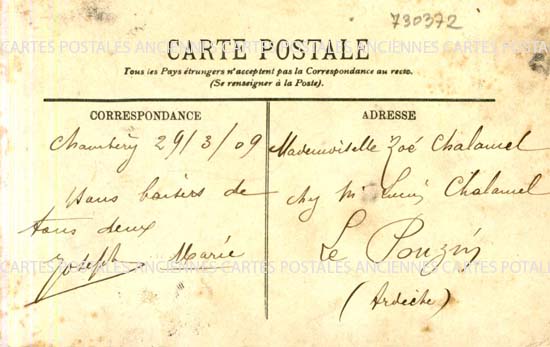 730372
CARTES POSTALES ANCIENNES CARTES POSTALES ANCIENNES CARTES POSTALES
CARTE POSTALE
Tous les Pays étrangers n'acceptent pas la Correspondance au recto.
(Se renseigner à la Poste).
CORRESPONDANCE
Chambéry 29/3/09
baisers de
tous deux
Joseph Marie
ADRESSE
Mademoiselle Zoé Chalamel
chez Mr Louis Chalamel
Le Pouzin
(Ardèche)
CARTES POSTALES ANCIENNES CARTES POSTALES ANCIENNES CARTES POTALES